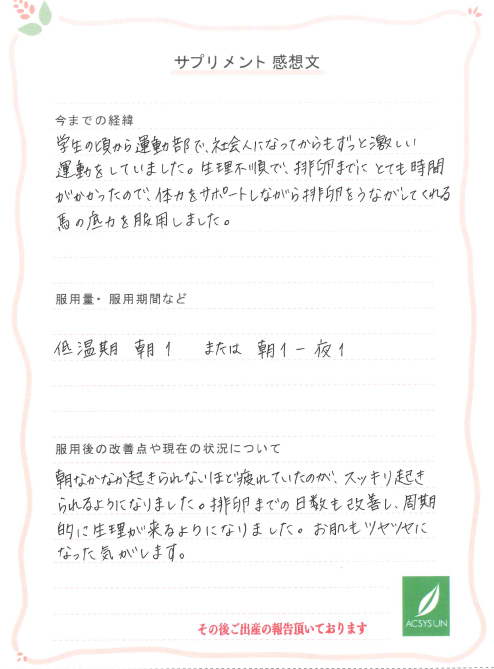 サプリメント 感想文
今までの経緯
学生の頃から運動部で、社会人になってからもずっと激しい
運動をしていました。生理不順で、排卵までにとても時間
がかかったので、体力をサポートしながら排卵をうながしてくれる
馬の底力を服用しました。
服用量・服用期間など
低温期 朝1 または 朝1-夜1
服用後の改善点や現在の状況について
朝なかなか起きられないほど疲れていたのが、スッキリ起き
られるようになりました。排卵までの日数も改善し、周期
的に生理が来るようになりました。お肌もツヤツヤに
なった気がします。
その後ご出産の報告頂いております
ACSYSUN